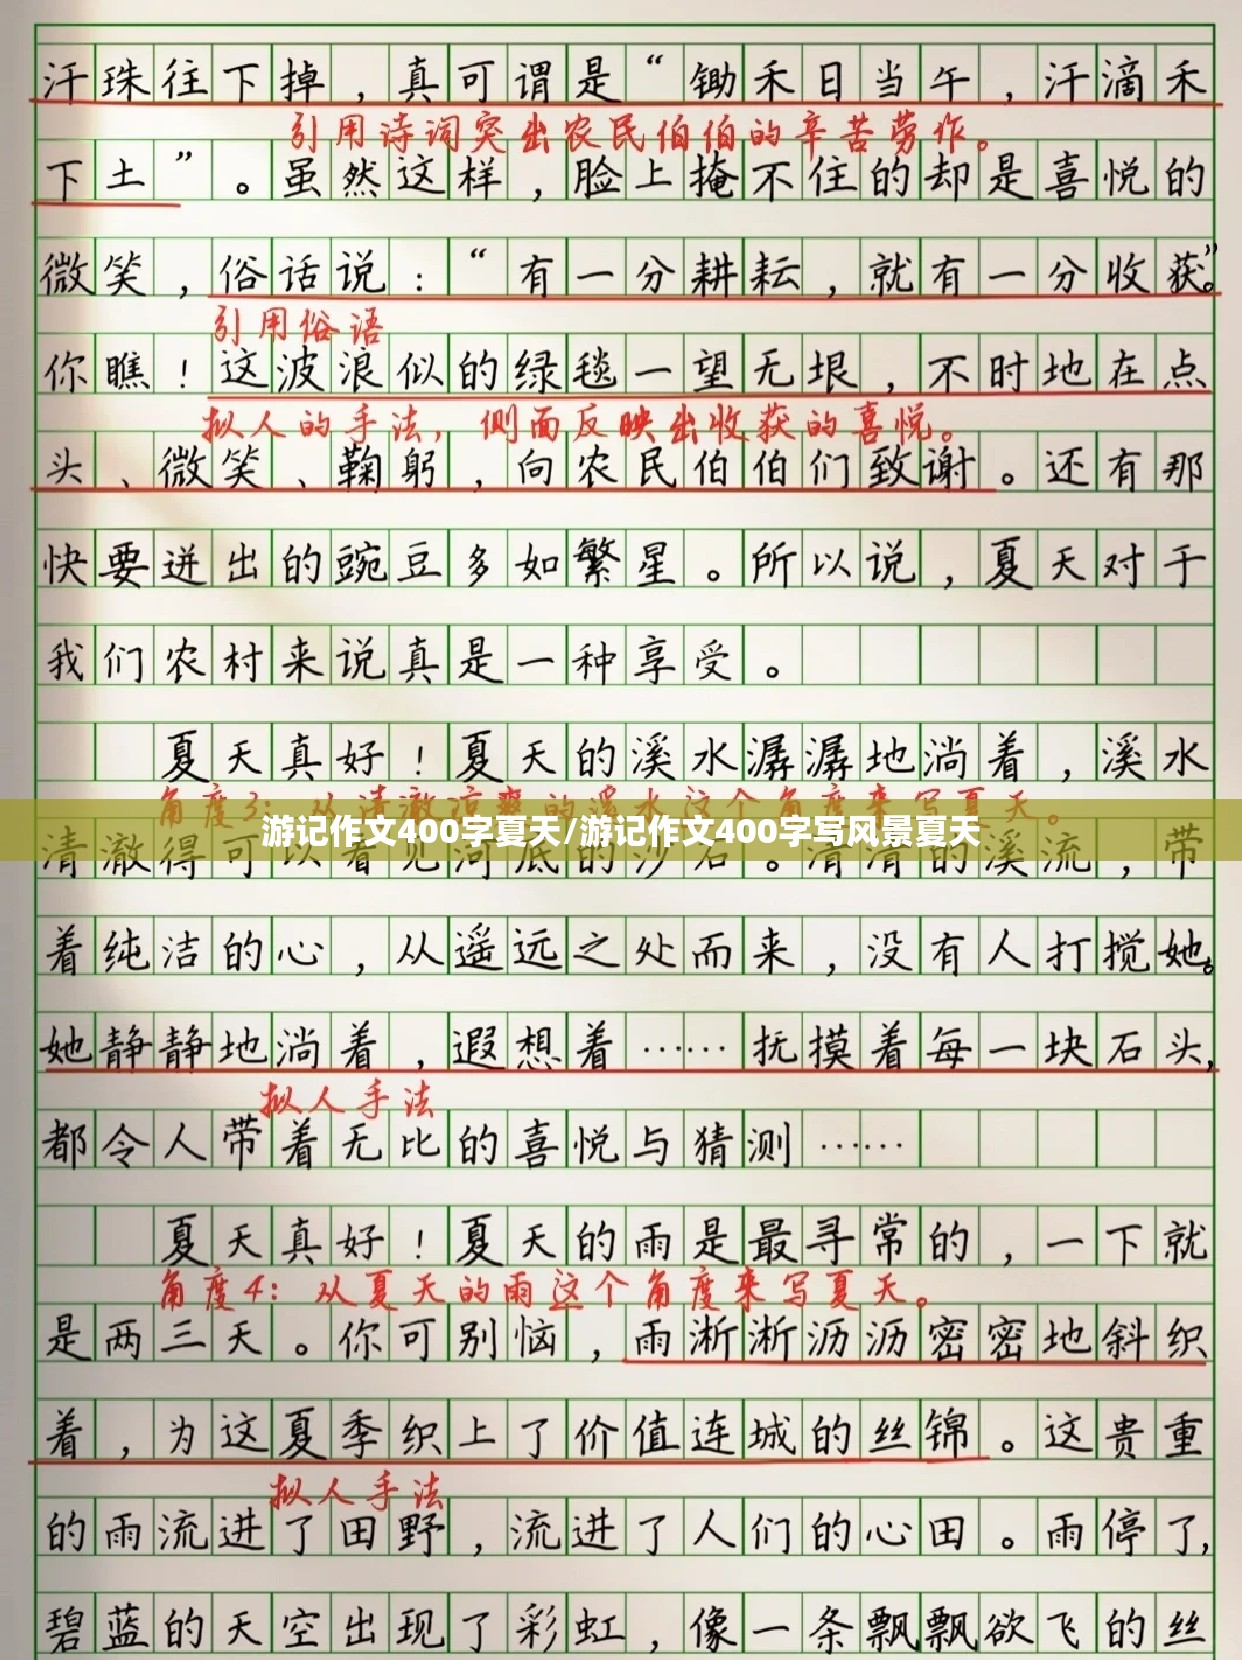 汗珠往下掉，真可谓是“锄禾日当午，汗滴禾
引用诗词突出农民伯伯的辛苦劳作。
下土”。虽然这样，脸上掩不住的却是喜悦的
微笑，俗话说：“有一分耕耘，就有一分收获。”
引用俗语
你瞧！这波浪似的绿毯一望无垠，不时地在点
拟人的手法，侧面反映出收获的喜悦。
头、微笑、鞠躬，向农民伯伯们致谢。还有那
快要迸出的豌豆多如繁星。所以说，夏天对于
我们农村来说真是一种享受。
夏天真好！夏天的溪水潺潺地淌着，溪水
角度3：从清澈凉爽的溪水这个角度来写夏天。
游记作文400字夏天/游记作文400字写风景夏天
清澈得可以看见河底的沙石。清清的溪流，带
着纯洁的心，从遥远之处而来，没有人打搅她。
她静静地淌着，遐想着……抚摸着每一块石头，
拟人手法
都令人带着无比的喜悦与猜测……
夏天真好！夏天的雨是最寻常的，一下就
角度4：从夏天的雨这个角度来写夏天。
是两三天。你可别恼，雨淅淅沥沥密密地斜织
着，为这夏季织上了价值连城的丝锦。这贵重
拟人手法
的雨流进了田野，流进了人们的心田。雨停了，
碧蓝的天空出现了彩虹，像一条飘飘欲飞的丝